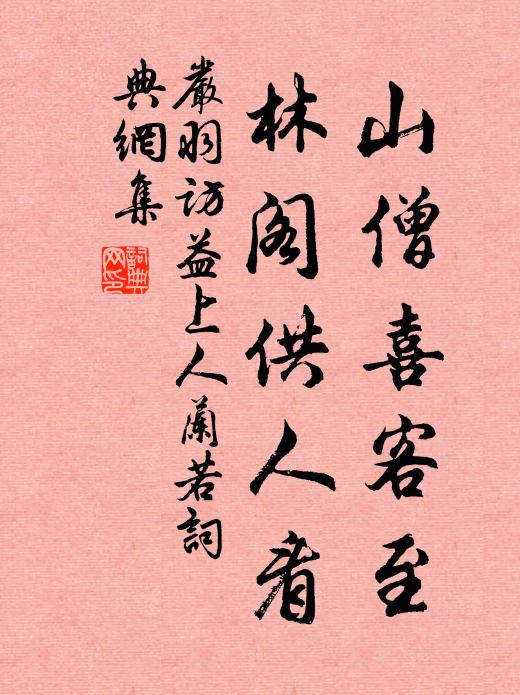 山僧喜客至
林阁供人看
嚴羽訪益上人蘭若詞
典網集
詞典
网印